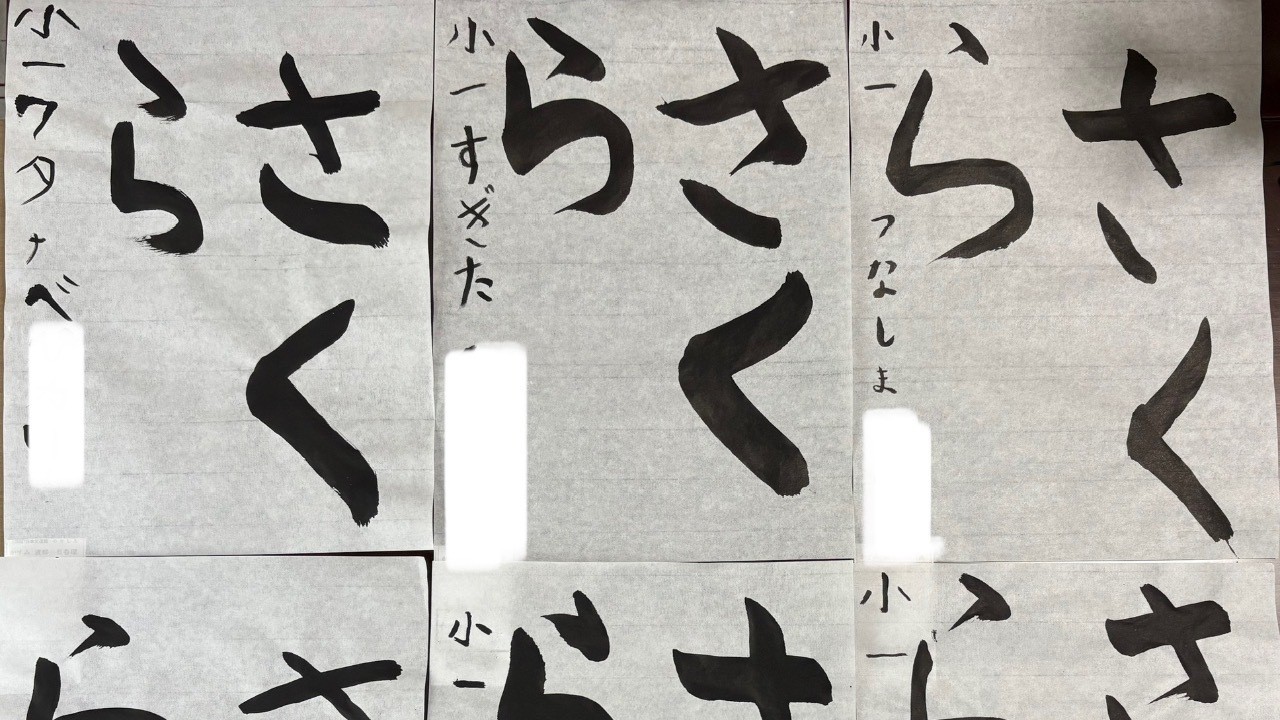 さく
ら
小一ワタナベ
さく
ら
小一すぎた
さく
ら
小一つなしま
さ
ら
さ
ら
小一
さ
ら
小一